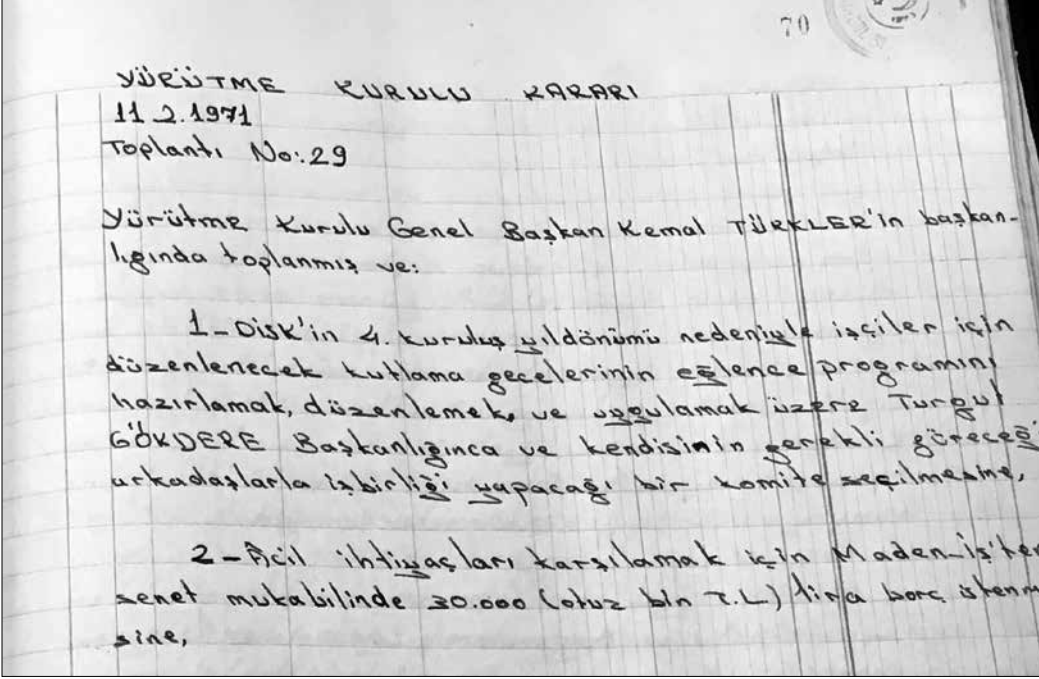 70
YÜRÜTME KURULU KARARI
11.2.1971
Toplantı No:29
Yürütme Kurulu Genel Başkan Kemal TÜRKLER'in başkan-
lığında toplanmış ve:
1_ Disk'in 4. kuruluş yıldönümü nedeniyle işçiler için
düzenlenecek kutlama gecelerinin eğlence programını
hazırlamak, düzenlemek, ve uygulamak üzere Turgut
GÖKDERE Başkanlığınca ve kendisinin gerekli göreceği
arkadaşlarla işbirliği yapacağı bir komite seçilmesine,
2_ Âcil ihtiyaçları karşılamak için Maden-İş'ten
senet mukabilinde 30.000 (otuz bin T.L) lira borç istenm
sine,